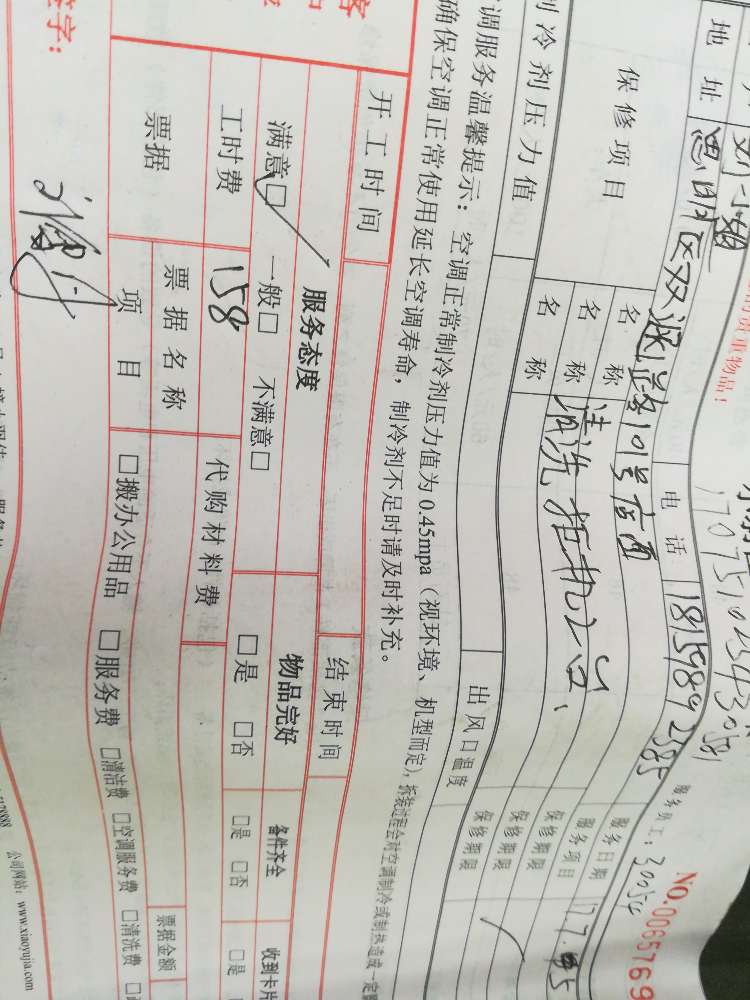 NO.0065769
服务员工：30054
刘小姐
地址 思明区双涵路101号店面 电话 18159892585
服务日期 17.7.
保修项目 名称 服务项目
名称 清洗挂机1台、 保修期限
名称 保修期限
制冷剂压力值 出风口温度 保修期限
调服务温馨提示：空调正常制冷剂压力值为0.45mpa（视环境、机型而定），拆装过程会对空调制冷或制热造成一定
确保空调正常使用延长空调寿命，制冷剂不足时请及时补充。
开工时间 结束时间
服务态度 物品完好 备件齐全 收到卡片
满意□ 一般□ 不满意□ □是 □否 □是 □否 □是
工时费 158 代购材料费
票据 票据名称 票据金额
项目 □搬办公用品 □服务费 □清洁费 □空调服务费 □清洗费
签字：
公司网站：www.xiaoyujia.com